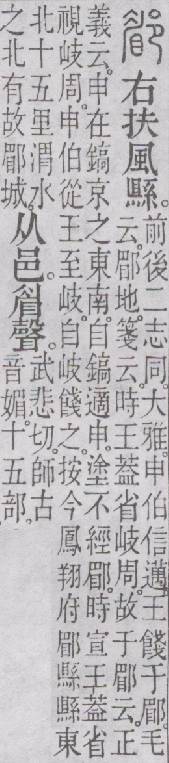 郿 右扶風縣。
前後二志同。大雅。申伯信邁。王餞于郿。毛
云。郿地。箋云。時王蓋省岐周。故于郿云。正
義云。申在鎬京之東南。自鎬適申。塗不經郿。時宣王蓋省
視岐周。申伯從王至岐。自岐餞之。按今鳳翔府郿縣縣東
北十五里渭水
之北有故郿城。
从邑。眉聲。
武悲切。師古
音媚。十五部。